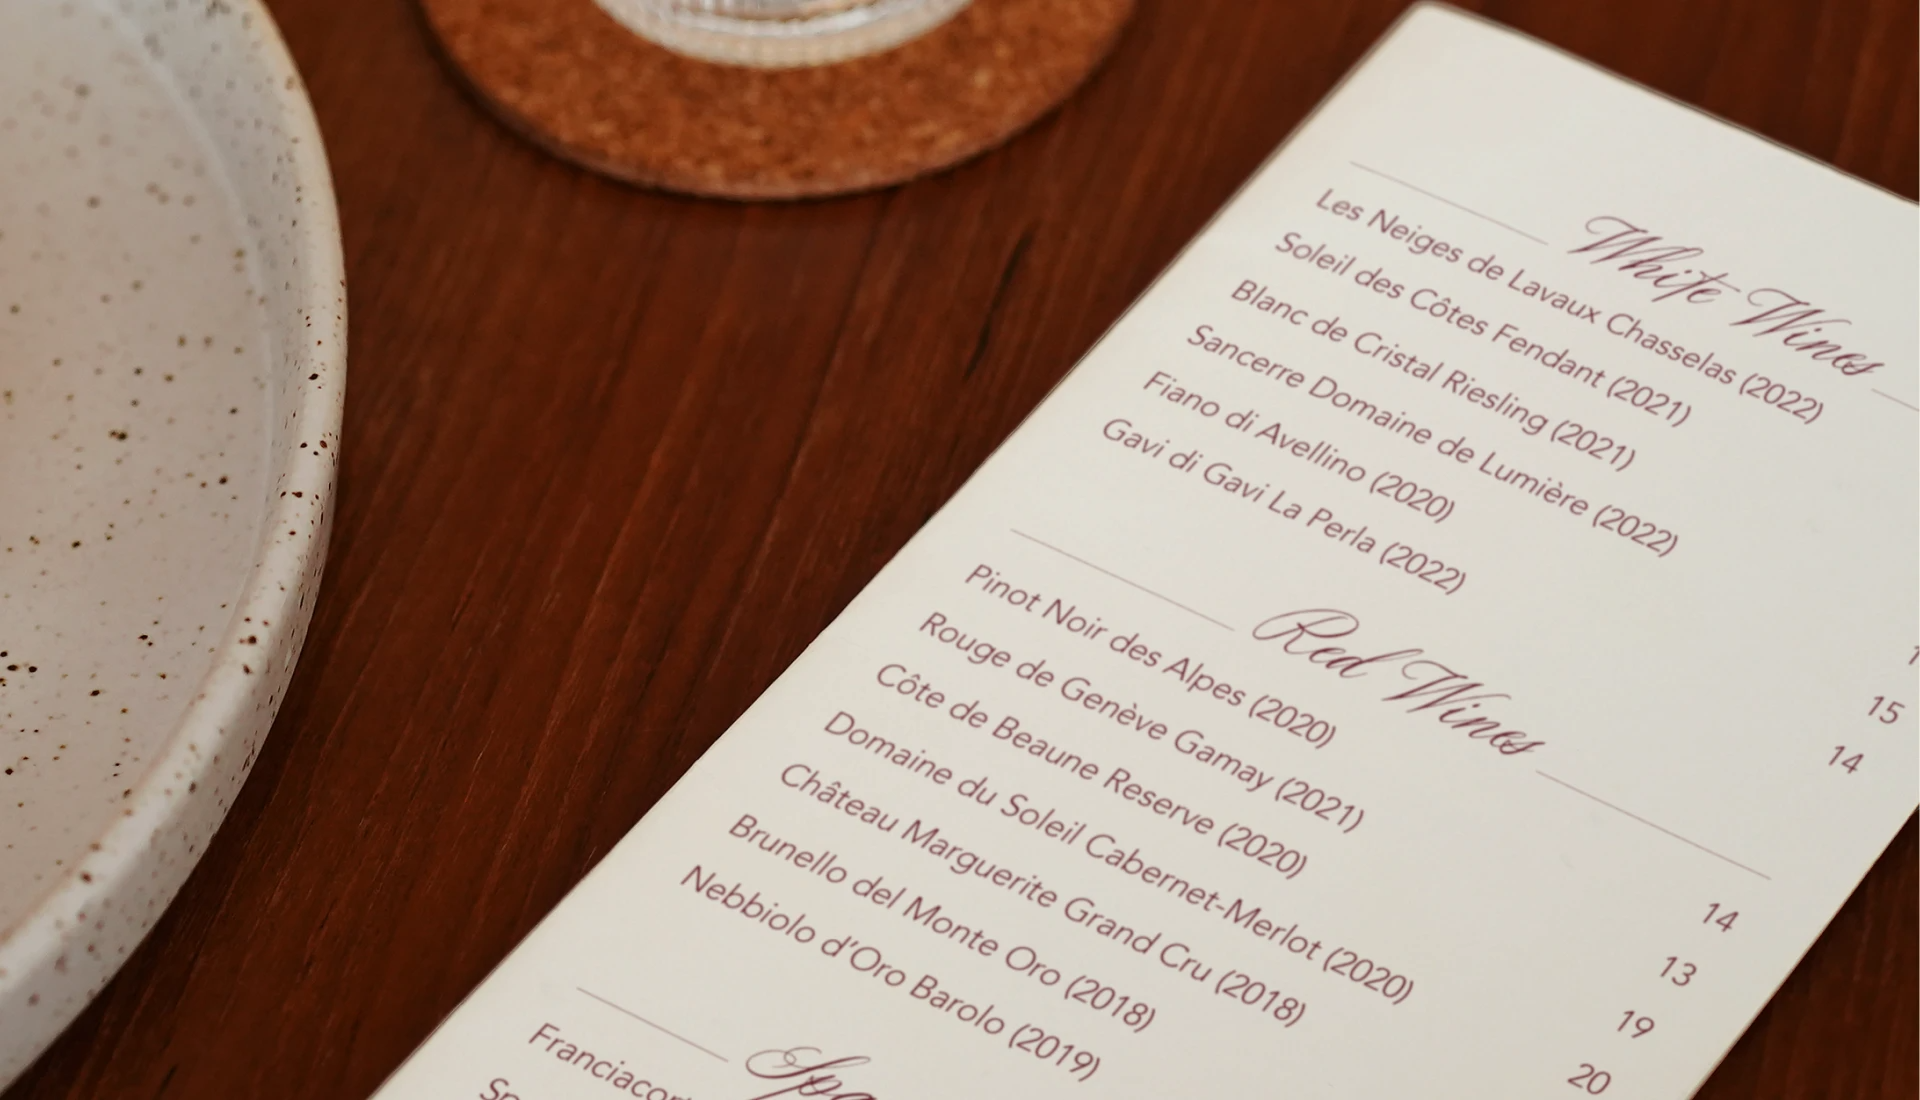 White Wines
Les Neiges de Lavaux Chasselas (2022)
Soleil des Côtes Fendant (2021)
Blanc de Cristal Riesling (2021)
Sancerre Domaine de Lumière (2022)
Fiano di Avellino (2020) 15
Gavi di Gavi La Perla (2022) 14
Red Wines
Pinot Noir des Alpes (2020) 14
Rouge de Genève Gamay (2021) 13
Côte de Beaune Reserve (2020) 19
Domaine du Soleil Cabernet-Merlot (2020) 20
Château Marguerite Grand Cru (2018)
Brunello del Monte Oro (2018)
Nebbiolo d'Oro Barolo (2019)